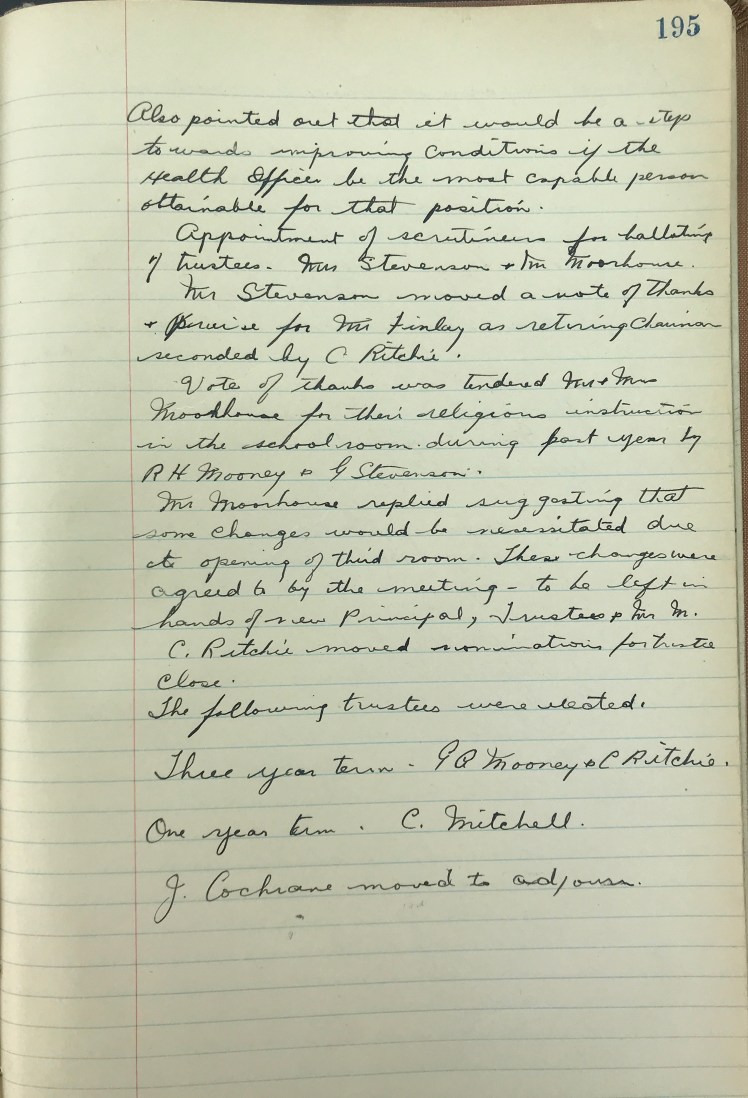 195
Also pointed out that it would be a step
towards improving conditions if the
Health Officer be the most capable person
attainable for that position.
Appointment of scrutineers for balloting
of trustees. Mrs Stevenson + Mr Moorhouse.
Mr Stevenson moved a vote of thanks
+ for Mr Finlay as retiring Chairman
seconded by C Ritchie.
Vote of thanks was tendered Mr + Mrs
Moorhouse for their religious instruction
in the schoolroom during past year by
R H Mooney & G Stevenson.
Mr Moorhouse replied suggesting that
some changes would be necessitated due
to opening of third room. These changes were
agreed to by the meeting - to be left in
hands of new Principal, Trustees & Mr M.
C. Ritchie moved nominations for trustee
close.
The following trustees were elected.
Three year term - Mooney & C Ritchie.
One year term. C. Mitchell.
J. Cochrane moved to adjourn.